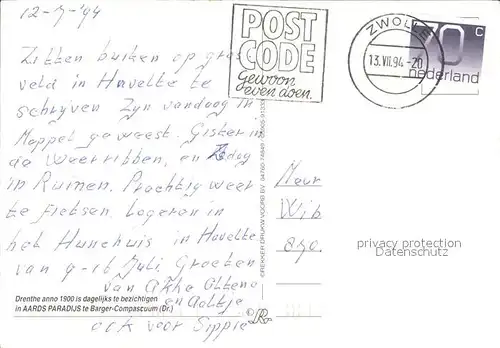 12-7-'94
Zitten buiten op gras
veld in Havelte te
schrijven Zyn vandaag in
Meppel geweest. Gisteren
de Weerribben, en Zondag
in Ruinen. Prachtig weer
te fietsen logeren in
het Hunehuis in Havelte
van 9-16 Juli Groeten
van Akke
en Aaltje
ook voor Sippie
Drenthe anno 1900 is dagelijks te bezichtigen
in AARDS PARADIJS te Barger-Compascuum (Dr.)
POST
CODE
Gewoon
even doen.
ZWOLLE
13.VII.94-20
70 c
nederland
REKKER DRUKW VOORB BV
privacy protection
Datenschutz